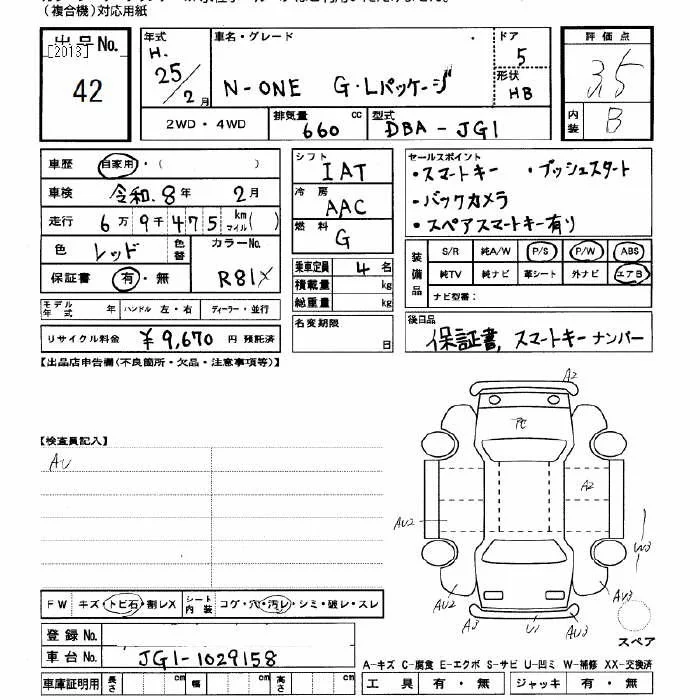 (複合機)対応用紙
出品No.
[2013]
42
年式 H. 25/2月
車名・グレード N-ONE G・Lパッケージ
ドア 5
形状 HB
2WD・4WD
排気量 660 cc
型式 DBA-JG1
評価点 3.5
内装 B
車歴 自家用・( )
車検 令和.8年 2月
走行 6万9千475 km マイル( )
色 レッド 色替
カラーNo. R81X
保証書 有・無
モデル年式 年 ハンドル 左・右 ディーラー・並行
リサイクル料金 ¥9,670 円 預託済
シフト IAT
冷房 AAC
燃料 G
乗車定員 4名
積載量 kg
総重量 kg
名変期限 日
セールスポイント
・スマートキー ・プッシュスタート
・バックカメラ
・スペアスマートキー有り
装備品 S/R 純A/W P/S P/W ABS
純TV 純ナビ 革シート 外ナビ エアB
ナビ型番:
後日品
保証書, スマートキーナンバー
【出品店申告欄(不良箇所・欠品・注意事項等)】
【検査員記入】
AU
A2
A2
AU2
W3
AU2
AU3
A3
U1
AU3
スペア
FW キズ・トビ石・割レX
シート内装 コゲ・穴・汚レ・シミ・破レ・スレ
登録No.
車台No. JG1-1029158
車庫証明用 長さ cm 幅 cm 高さ cm
A-キズ C-腐食 E-エクボ S-サビ U-凹ミ W-補修 XX-交換済
工具 有・無 ジャッキ 有・無